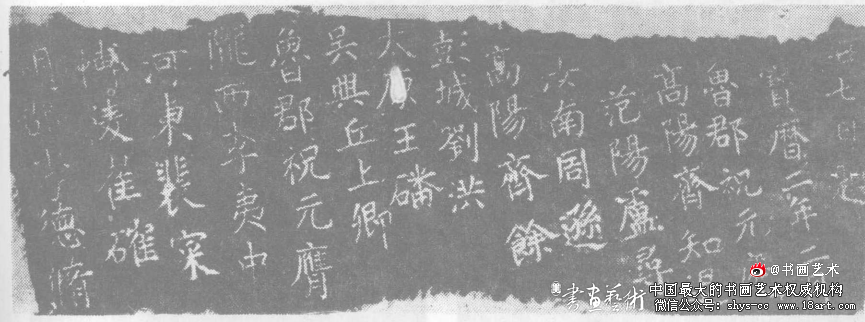 廿七日
寶曆二年二
魯郡祝元
高陽齊知
范陽盧尋
汝南周遜
高陽齊餘
彭城劉洪
太原王磻
吳興丘上卿
魯郡祝元膺
隴西李夷中
河東裴寀
博陵崔確
李德脩
@书画艺术
中国最大的书画艺术权威机构
書画藝術
微信公众号：shys-cc www.18art.com